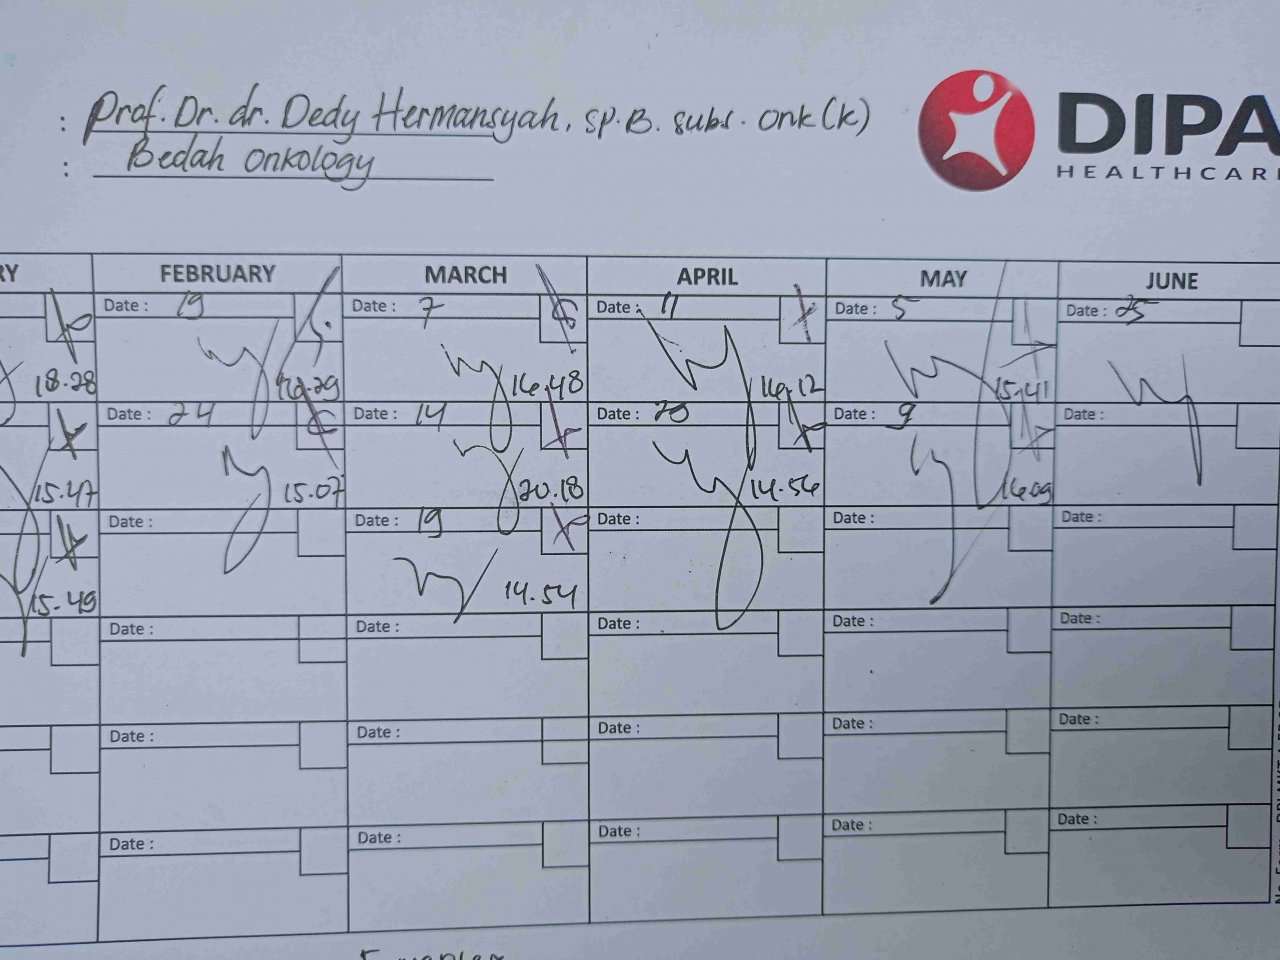 : Prof. Dr. dr. Dedy Hermansyah, sp.B. subs. onk(k)
: Bedah onkology
DIPA
HEALTHCAR
RY FEBRUARY MARCH APRIL MAY JUNE
Date : 19 Date : 7 Date : 11 Date : 5 Date : 25
18.28 16.48 16.12 15.41
Date : 24 Date : 14 Date : 20 Date : 9 Date :
15.47 15.07 20.18 14.56 16.09
Date : Date : 19 Date : Date : Date :
15.49 14.54
Date : Date : Date : Date : Date :
Date : Date : Date : Date : Date :
Date : Date : Date : Date : Date :